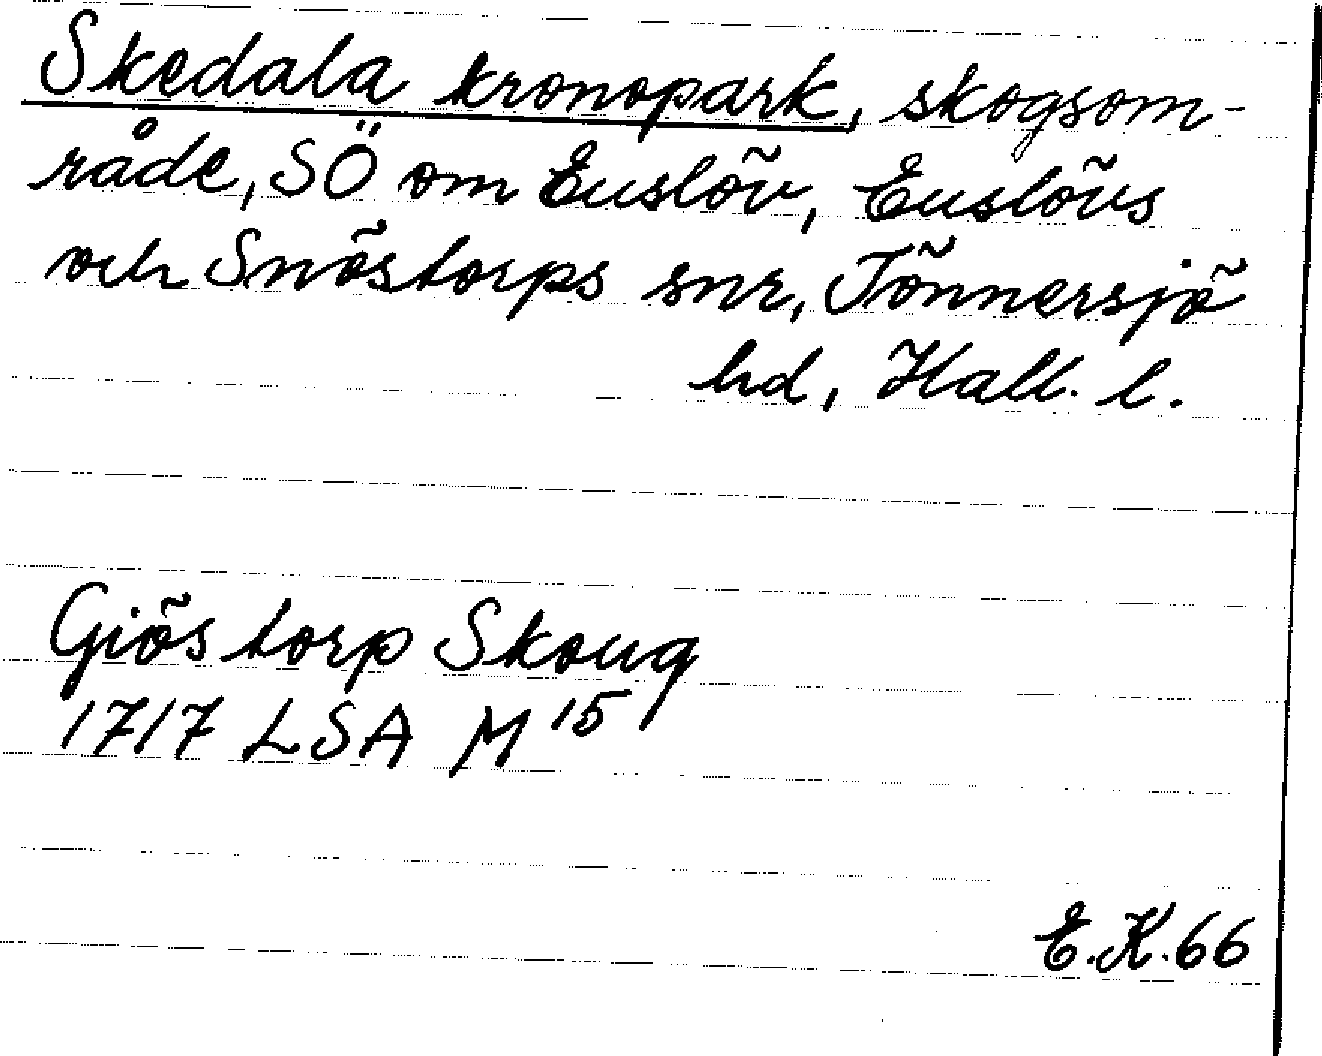 Skedala kronopark, skogsom-
råde, SÖ om Euslöv, Euslövs
och Snöstorps snr, Tönnersjö
hd, Hall. l.
Giöstorp Skoug
1717 LSA M 15
E.K.66